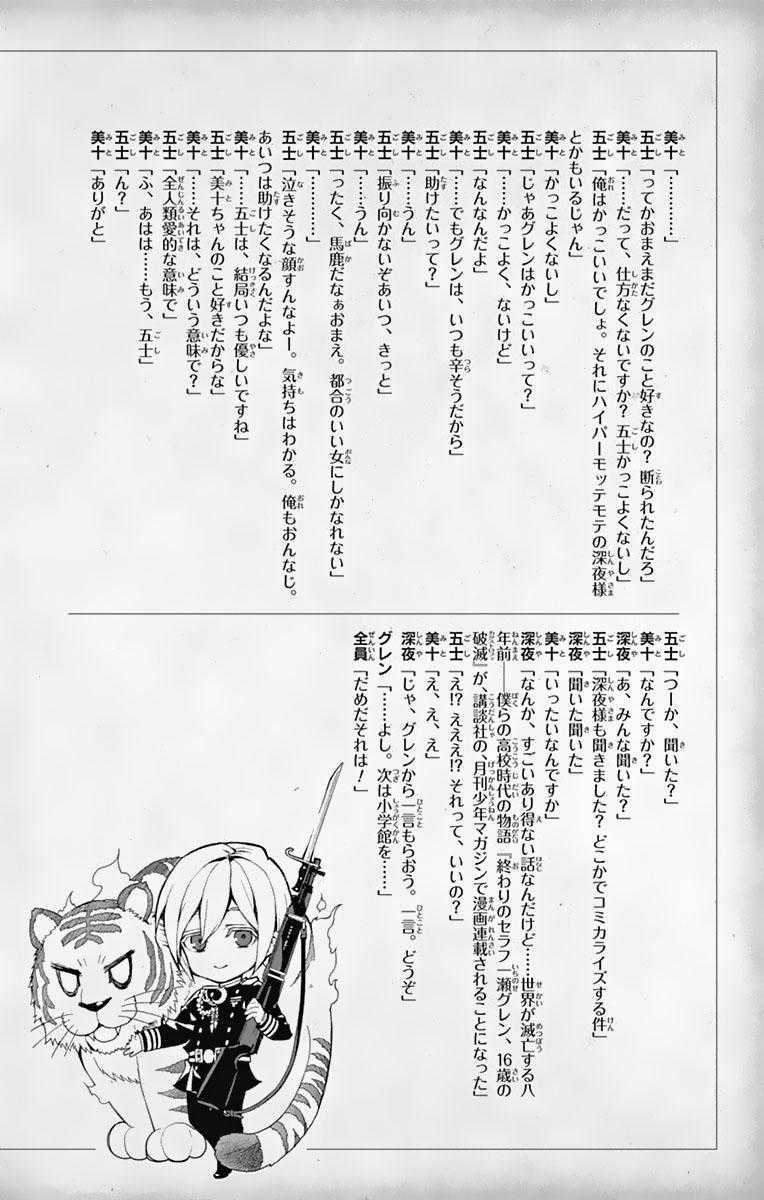 美十「…………」
五士「ってかおまえまだグレンのこと好きなの？ 断られたんだろ」
美十「……だって、仕方なくないですか？ 五士かっこよくないし」
五士「俺はかっこいいでしょ。それにハイパーモッテモテの深夜様
とかもいるじゃん」
美十「かっこよくないし」
五士「じゃあグレンはかっこいいって？」
美十「……かっこよく、ないけど」
五士「なんなんだよ」
美十「……でもグレンは、いつも辛そうだから」
五士「助けたいって？」
美十「……うん」
五士「振り向かないぞあいつ、きっと」
美十「……うん」
五士「ったく、馬鹿だなぁおまえ。都合のいい女にしかなれない」
美十「…………」
五士「泣きそうな顔すんなよー。気持ちはわかる。俺もおんなじ。
あいつは助けたくなるんだよな」
美十「……五士は、結局いつも優しいですね」
五士「美十ちゃんのこと好きだからな」
美十「……それは、どういう意味で？」
五士「全人類愛的な意味で」
美十「ふ、あはは……もう、五士」
五士「ん？」
美十「ありがと」
五士「つーか、聞いた？」
美十「なんですか？」
深夜「あ、みんな聞いた？」
五士「深夜様も聞きました？ どこかでコミカライズする件」
深夜「聞いた聞いた」
美十「いったいなんですか」
深夜「なんか、すごいあり得ない話なんだけど……世界が滅亡する八
年前――僕らの高校時代の物語『終わりのセラフ 一瀬グレン、16歳の
破滅』が、講談社の、月刊少年マガジンで漫画連載されることになった」
五士「え!? えええ!? それって、いいの？」
美十「え、え、え」
深夜「じゃ、グレンから一言もらおう。一言。どうぞ」
グレン「……よし。次は小学館を……」
全員「だめだそれは！」